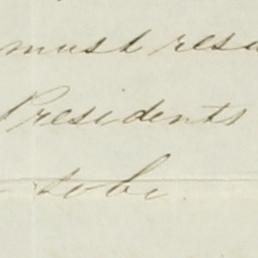 must resu
Presidents
to be